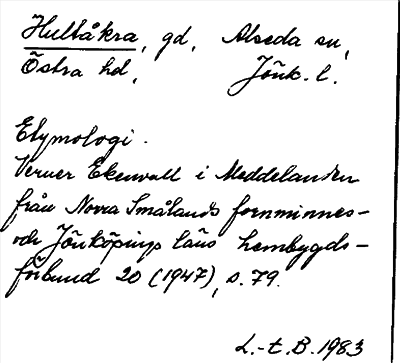 Hultåkra, gd, Alseda sn,
Östra hd, Jönk. l.
Etymologi.
Verner Ekenvall i Meddelanden
från Norra Smålands fornminnes-
och Jönköpings läns hembygds-
förbund 20 (1947), s. 79.
L.-E. B. 1983